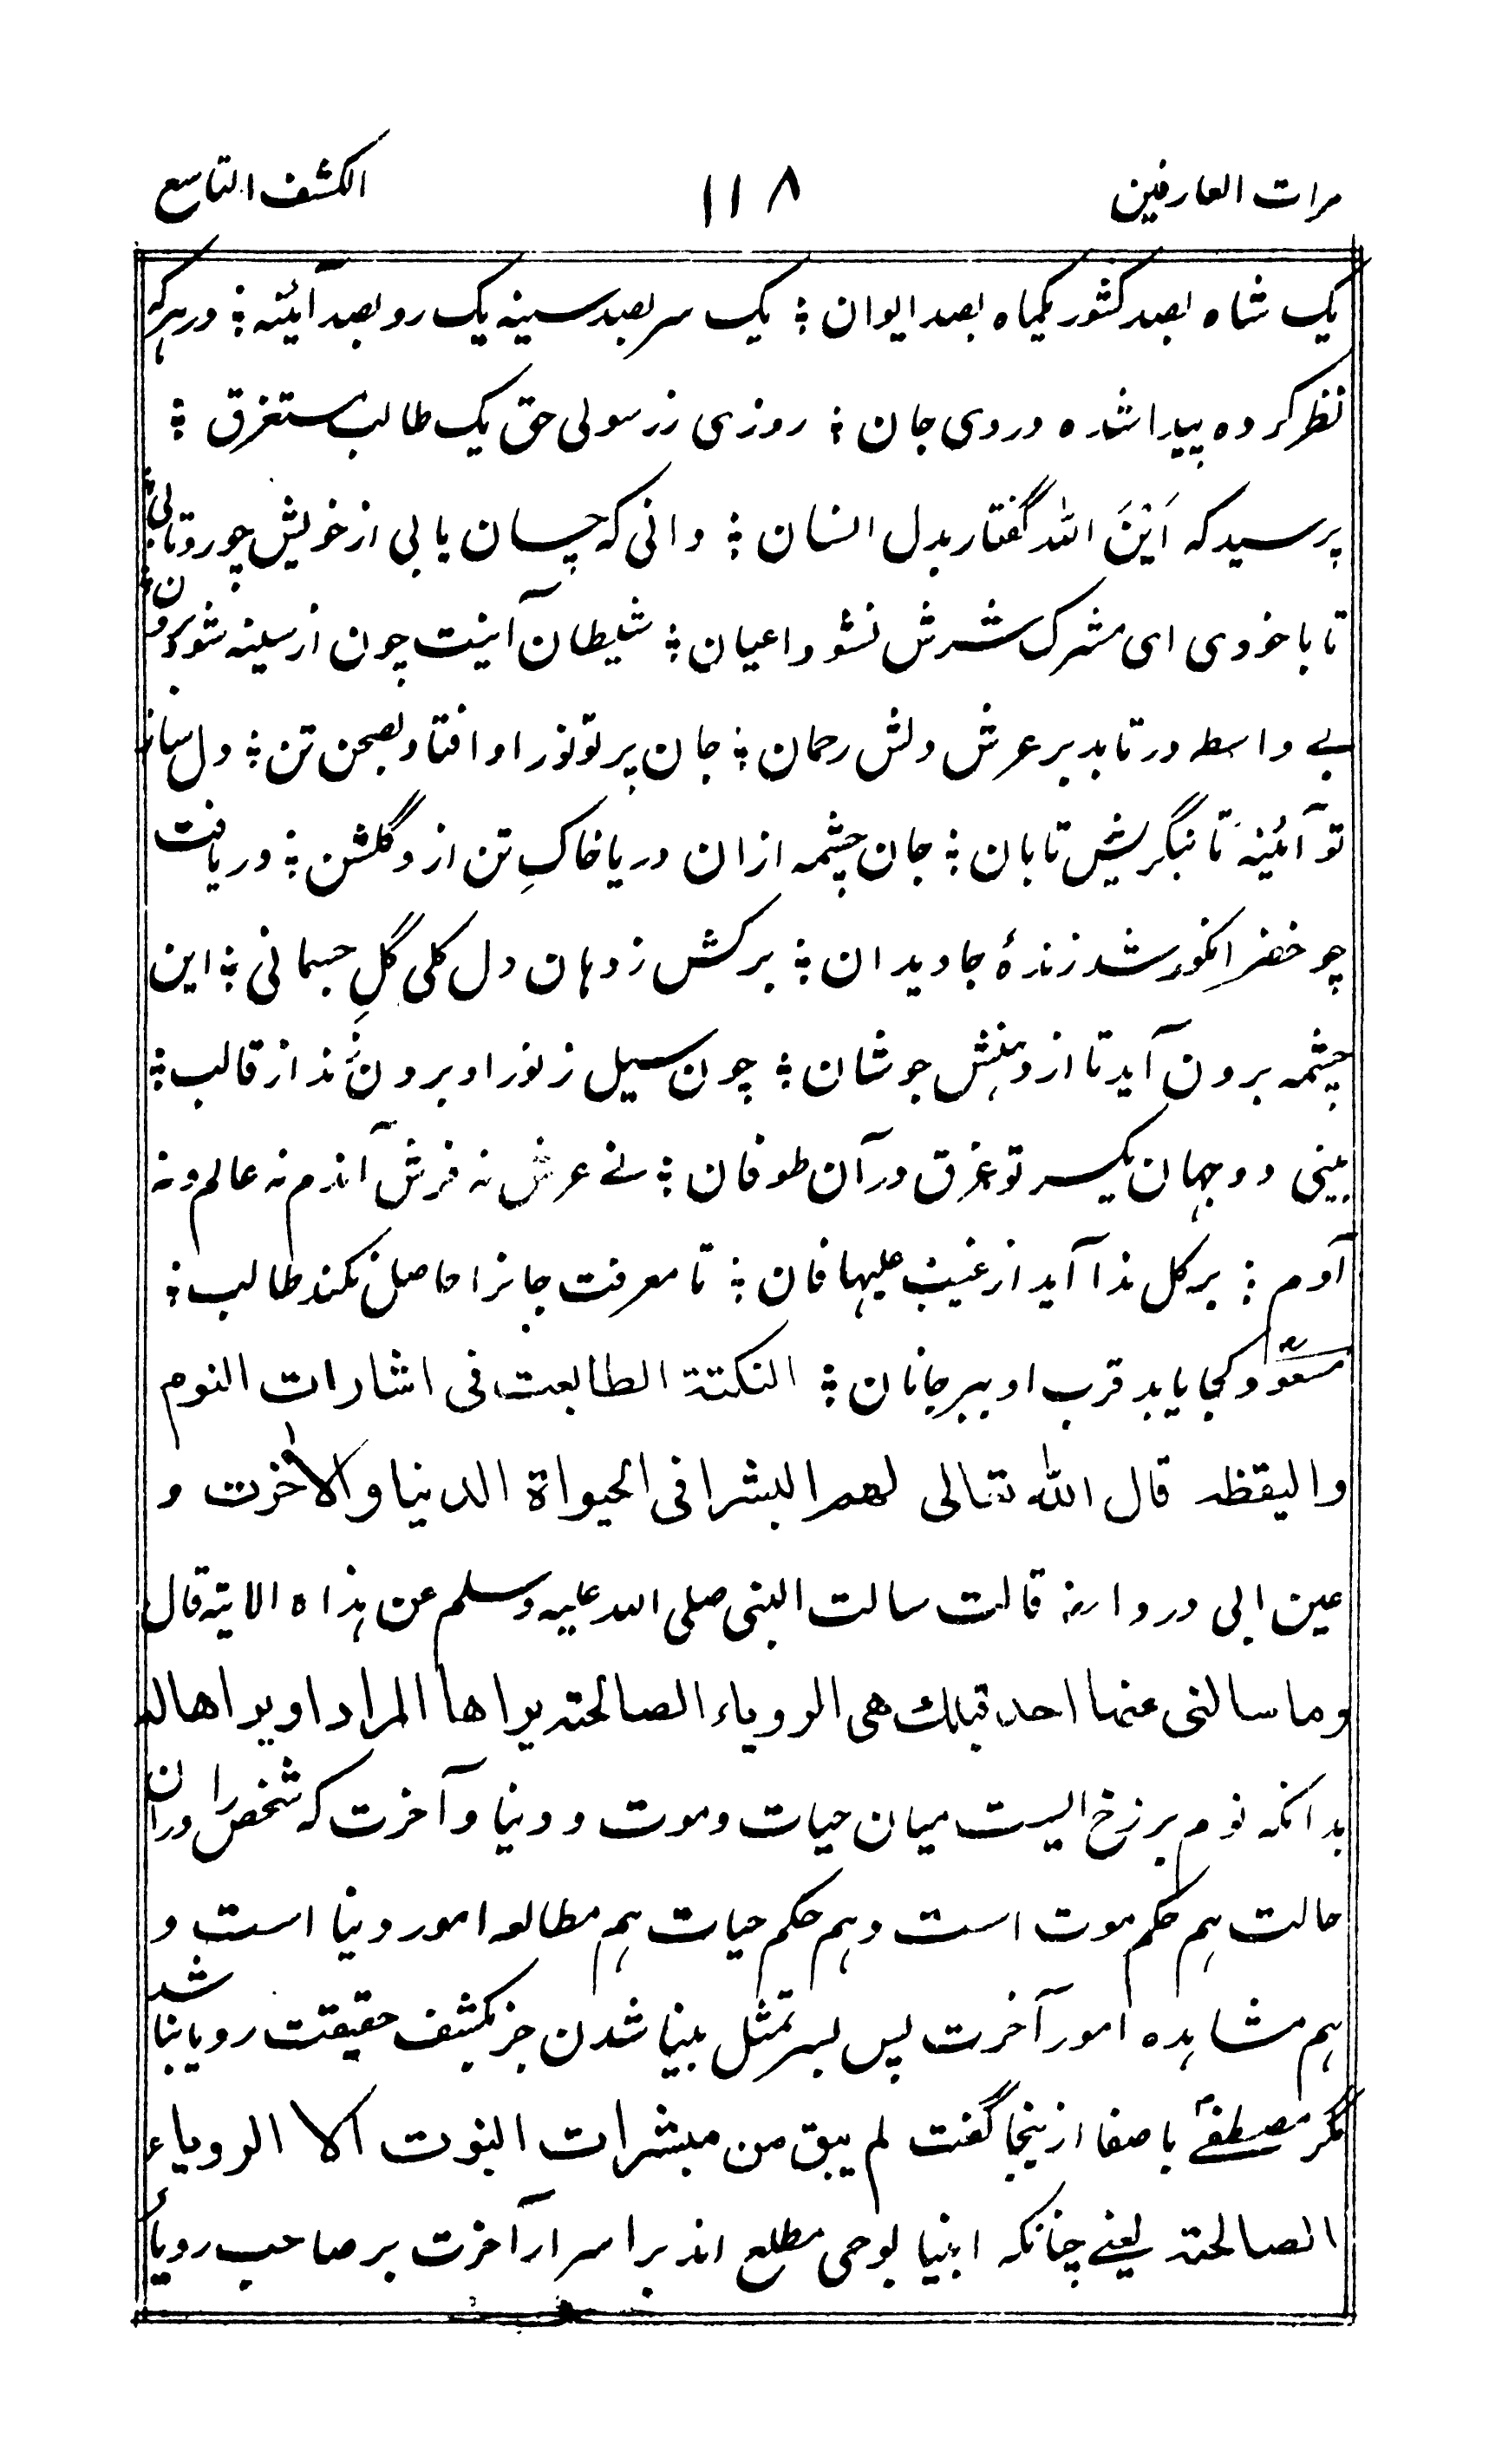 مرات العارفین ۱۱۸ الکشف التاسع
یک شاه بصد کشور یکماه بصد ایوان ؛ یک سر بصد سینه یک رو بصد آئنه ؛ در هر که
نظر کرده پیدا شده در وی جان ؛ روزی ز رسولی حق یک طالب مستغرق ؛
پرسید که اَیْنَ اللہ گفتا ربدل انسان ؛ دانی که چسان یابی از خویش چو روتابی
تا با خودی ای مشرک شرش نشود اعیان ؛ شیطان آنیت چون از سینه شود بیرون ؛
بے واسطه در تابد بر عرش دلش رحمان ؛ جان پرتو نور او افتاد بصحن تن ؛ دل ساز
تو آئینهٔ تا بنگریش تابان ؛ جان چشمه ازان دریا خاکِ تن ازو گلشن ؛ دریافت
چو خضر انکو شد زندهٔ جاویدان ؛ برکش ز دهان دل کلی گلِ جسمانی ؛ این
چشمه برون آید تا از دهنش جوشان ؛ چون سیل ز نور او برون زند از قالب ؛
بینی دو جهان یکسر تو غرق در آن طوفان ؛ نے عرش نه فرش آندم نه عالم و نه
آدم ؛ بر کل ندا آید از غیب علیها فان ؛ تا معرفت جانرا حاصل نکند طالب ؛
مسعود کجا یابد قرب او ببر جانان ؛ النکتة الطابعت فی اشارات النوم
والیقظه قال الله تعالی لهم البشرا فی الحیواة الدنیا والاخرت و
عین ابی دردا رضہ قالت سالت النبی صلی اللہ علیہ وسلم عن ہذاہ الایتہ قال
وما سالنی عنها احد قبلك هی الرویاء الصالحته یراها المراد او یراها له
بدانکه نوم برزخ الیست میان حیات و موت و دنیا و آخرت که شخص را دران
حالت ہم حکم موت است و ہم حکم حیات ہم مطالعه امور دنیا است و
ہم مشاہدہ امور آخرت پس بسر تمثل بینا شدن جز بکشف حقیقت رویا نباشد
مگر مصطفےٰ با صفا از ینجا گفت لم یبق من مبشرات النبوت الا الرویاء
الصالحته یعنے چنانکه انبیا بوحی مطلع اند بر اسرار آخرت بر صاحب رویاٗ